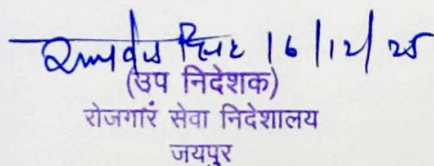 सिंह 16/12/25
(उप निदेशक)
रोजगार सेवा निदेशालय
जयपुर